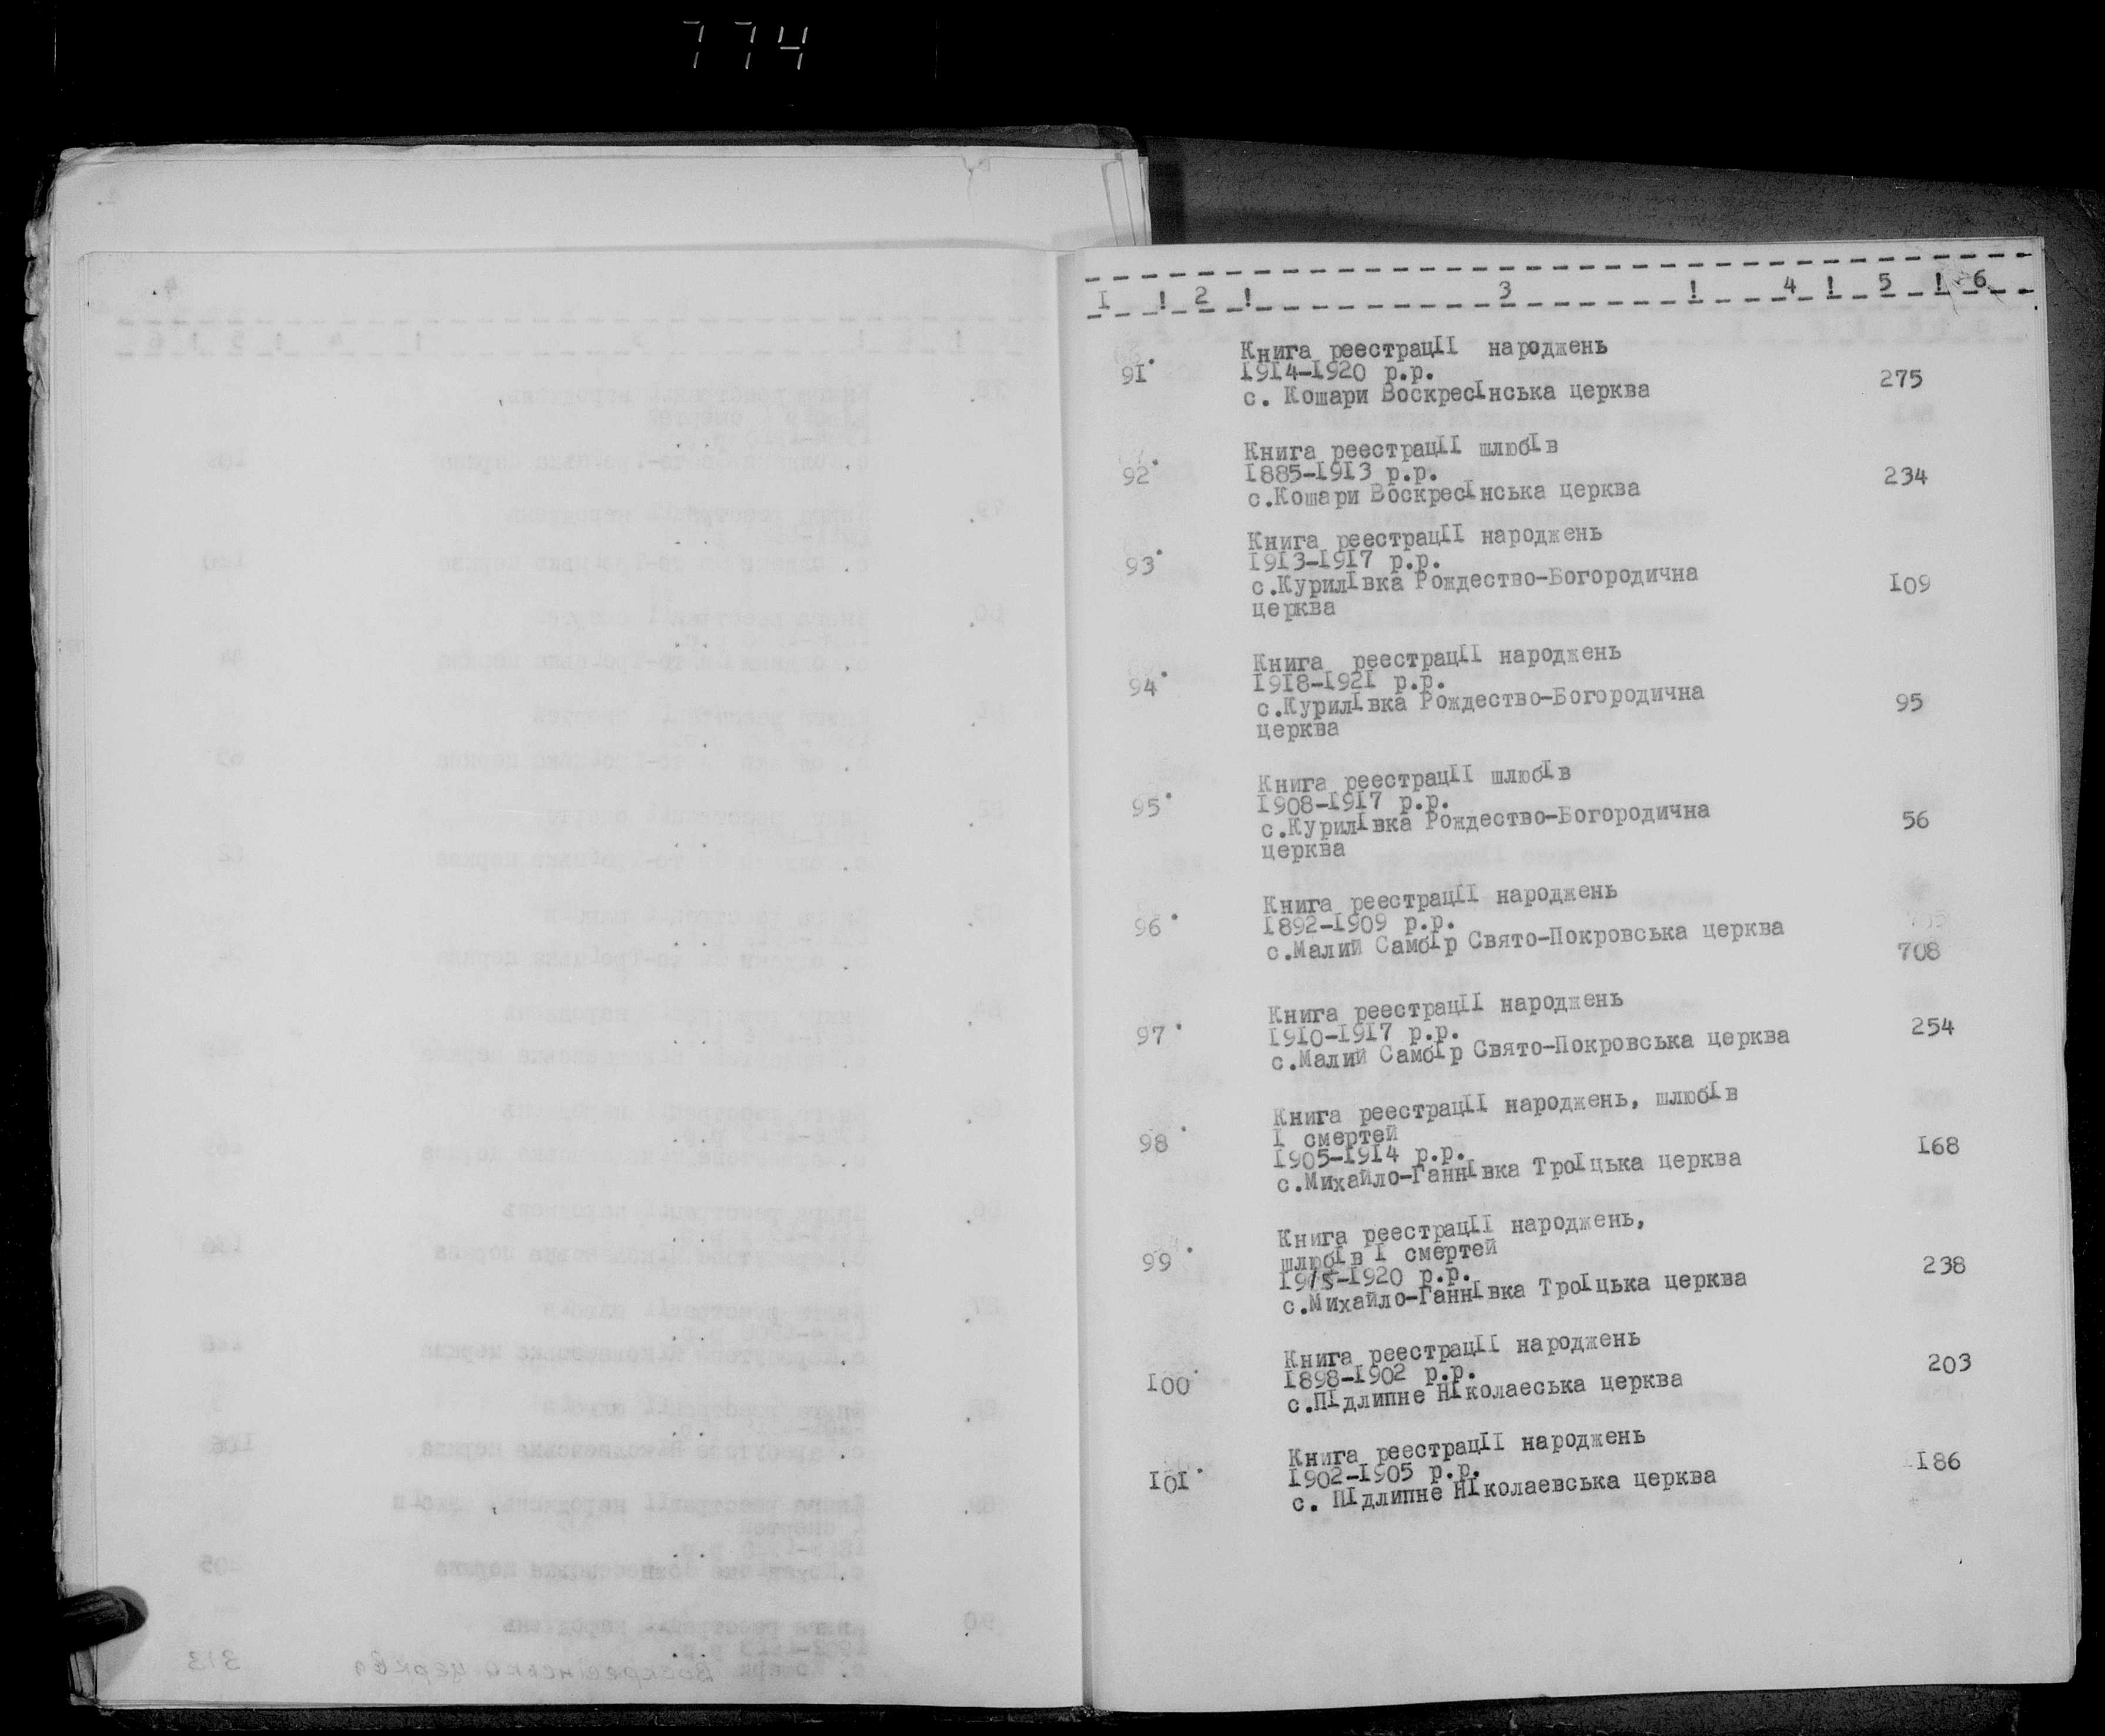 774
I ! 2 ! 3 ! 4 ! 5 ! 6
91. Книга реестрацII народжень
1914-1920 р.р.
с. Кошари ВоскресIнська церква 275
92. Книга реестрацII шлюбIв
1885-1913 р.р.
с.Кошари ВоскресIнська церква 234
93. Книга реестрацII народжень
1913-1917 р.р.
с.КурилIвка Рождество-Богородична 109
церква
94. Книга реестрацII народжень
1918-1921 р.р.
с.КурилIвка Рождество-Богородична 95
церква
95. Книга реестрацII шлюбIв
1908-1917 р.р.
с.КурилIвка Рождество-Богородична 56
церква
96. Книга реестрацII народжень
1892-1909 р.р.
с.Малий СамбIр Свято-Покровська церква 708
97. Книга реестрацII народжень
1910-1917 р.р. 254
с.Малий СамбIр Свято-Покровська церква
98. Книга реестрацII народжень, шлюбIв
I смертей
1905-1914 р.р. 168
с.Михайло-ГаннIвка ТроIцька церква
99. Книга реестрацII народжень,
шлюбIв I смертей
1915-1920 р.р. 238
с.Михайло-ГаннIвка ТроIцька церква
100. Книга реестрацII народжень
1898-1902 р.р. 203
с.ПIдлипне НIколаеська церква
101. Книга реестрацII народжень
1902-1905 р.р. 186
с. ПIдлипне НIколаевська церква